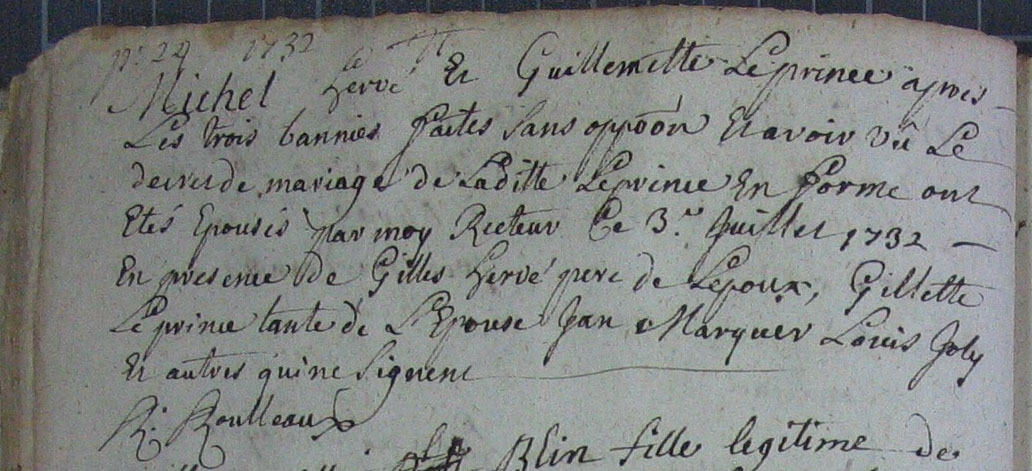 pr 29 1732
Michel hervé Et Guillemette Leprince apres
Les trois bannies faites sans oppoon Et avoir vû Le
decret de mariage de Laditte Leprince En forme ont
Etés Epousés par moy Recteur Ce 3.e Juillet 1732 —
En presence de Gilles hervé pere de Lepoux, Gillette
Leprince tante de L'Epouse Jan Marquer Louis Joly
Et autres qui ne signent
R. Roulleaux
Blin fille legitime de